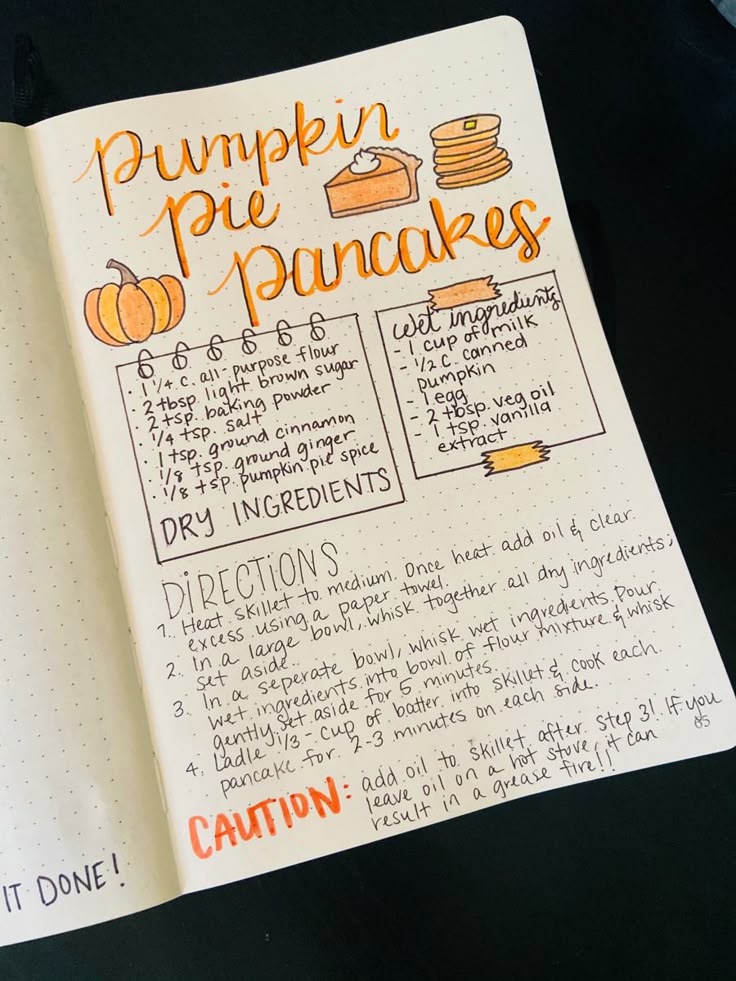 Pumpkin
Pie
Pancakes
· 1 1/4 c. all-purpose flour
· 2 tbsp. light brown sugar
· 2 tsp. baking powder
· 1/4 tsp. salt
· 1 tsp. ground cinnamon
· 1/8 tsp. ground ginger
· 1/8 tsp. pumpkin pie spice
DRY INGREDIENTS
wet ingredients
- 1 cup of milk
- 1/2 c. canned
pumpkin
- 1 egg
- 2 tbsp. veg oil
- 1 tsp. vanilla
extract
DIRECTIONS
1. Heat skillet to medium. Once heat add oil & clear
excess using a paper towel.
2. In a large bowl, whisk together all dry ingredients;
set aside.
3. In a seperate bowl, whisk wet ingredients. Pour
wet ingredients into bowl of flour mixture & whisk
gently. Set aside for 5 minutes.
4. Ladle 1/3-cup of batter into skillet & cook each
pancake for 2-3 minutes on each side.
CAUTION: add oil to skillet after step 3! If you
leave oil on a hot stove, it can
result in a grease fire!!
85
IT DONE!